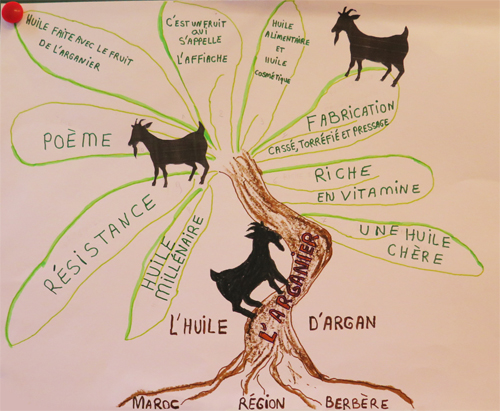 HUILE FAITE AVEC LE FRUIT
DE L'ARGANIER
C'EST UN FRUIT
QUI
S'APPELLE
L'AFFIACHE
HUILE
ALIMENTAIRE
ET
HUILE
COSMÉTIQUE
POÈME
FABRICATION
CASSÉ, TORRÉFIÉ ET PRESSAGE
RICHE
EN VITAMINE
RÉSISTANCE
HUILE
MILLÉNAIRE
UNE HUILE
CHÈRE
L'ARGANIER
L'HUILE D'ARGAN
MAROC RÉGION BERBÈRE